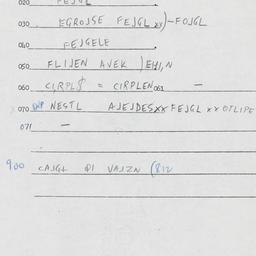 020 FEJGL
030 EGROJSE FEJGL xx)-FOJGL
040 FEJGELE
050 FLIJEN AVEK
060 = CIRPLEN 061 -
070 NESTL AJEJDESxx FEJGL xx OTLIPE
071 -
900 CAJGL VAJZN (812